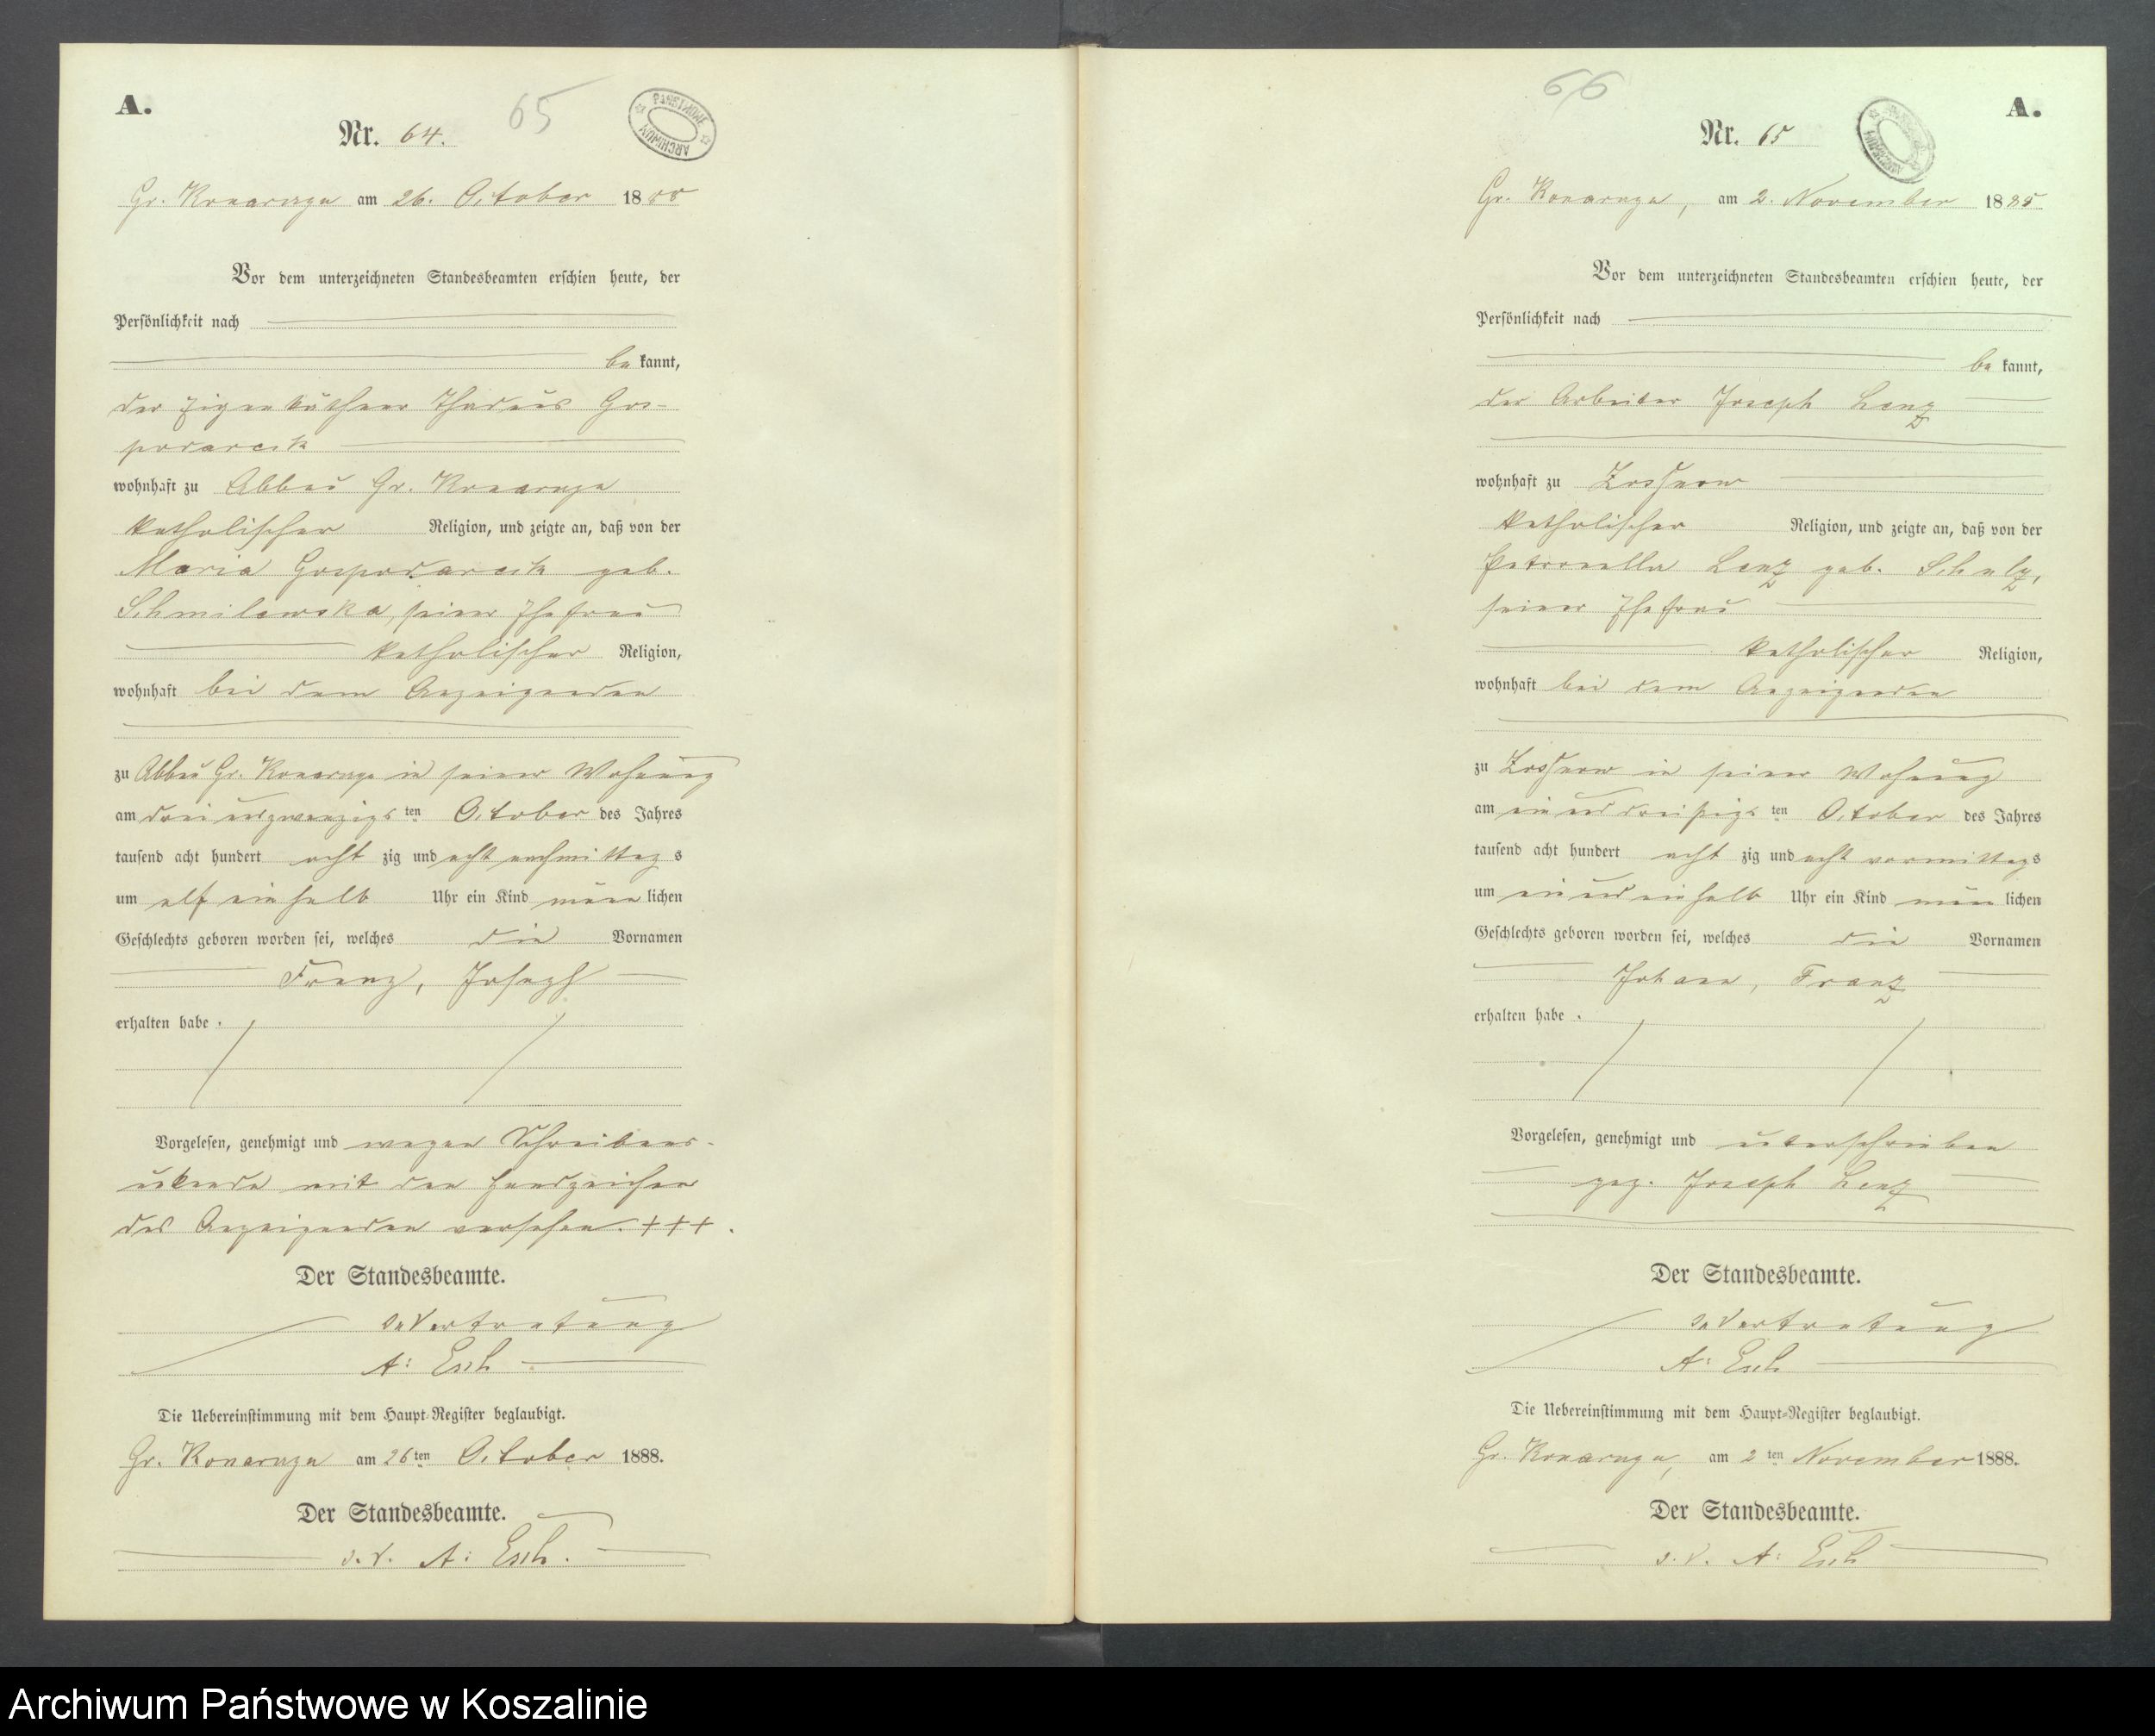 A.
Nr. 64.
65
PAŃSTWOWE ARCHIWUM
Gr. Konarczyn am 26. October 1888
Vor dem unterzeichneten Standesbeamten erschien heute, der
Persönlichkeit nach
be kannt,
der Eigenkäthner Thadeus Gos-
podarcik
wohnhaft zu Abbau Gr. Konarzyn
katholischer Religion, und zeigte an, daß von der
Maria Gospodarcik geb.
Schmilewska, seiner Ehefrau
katholischer Religion,
wohnhaft bei dem Anzeigenden
zu Abbau Gr. Konarzyn in seiner Wohnung
am drei und zwanzigs ten October des Jahres
tausend acht hundert acht zig und acht nachmittag s
um elf einhalb Uhr ein Kind männ lichen
Geschlechts geboren worden sei, welches die Vornamen
Franz, Joseph
erhalten habe.
Vorgelesen, genehmigt und wegen Schreibens-
unkunde mit den Handzeichen
des Anzeigenden versehen. +++.
Der Standesbeamte.
In Vertretung
A: Esch
Die Uebereinstimmung mit dem Haupt-Register beglaubigt.
Gr. Konarzyn am 26 ten October 1888.
Der Standesbeamte.
I. V. A: Esch.
66
A.
Nr. 65
Gr. Konarzyn, am 2. November 1888
Vor dem unterzeichneten Standesbeamten erschien heute, der
Persönlichkeit nach
be kannt,
der Arbeiter Joseph Lenz
wohnhaft zu Zossnow
katholischer Religion, und zeigte an, daß von der
Petronella Lenz geb. Schulz,
seiner Ehefrau
katholischer Religion,
wohnhaft bei dem Anzeigenden
zu Zossnow in seiner Wohnung
am ein und dreißigs ten October des Jahres
tausend acht hundert acht zig und acht vormittags
um ein und einhalb Uhr ein Kind männ lichen
Geschlechts geboren worden sei, welches die Vornamen
Johann, Franz
erhalten habe.
Vorgelesen, genehmigt und unterschrieben
gez. Joseph Lenz
Der Standesbeamte.
In Vertretung
A: Esch
Die Uebereinstimmung mit dem Haupt-Register beglaubigt.
Gr. Konarzyn, am 2 ten November 1888.
Der Standesbeamte.
I. V. A: Esch
Archiwum Państwowe w Koszalinie